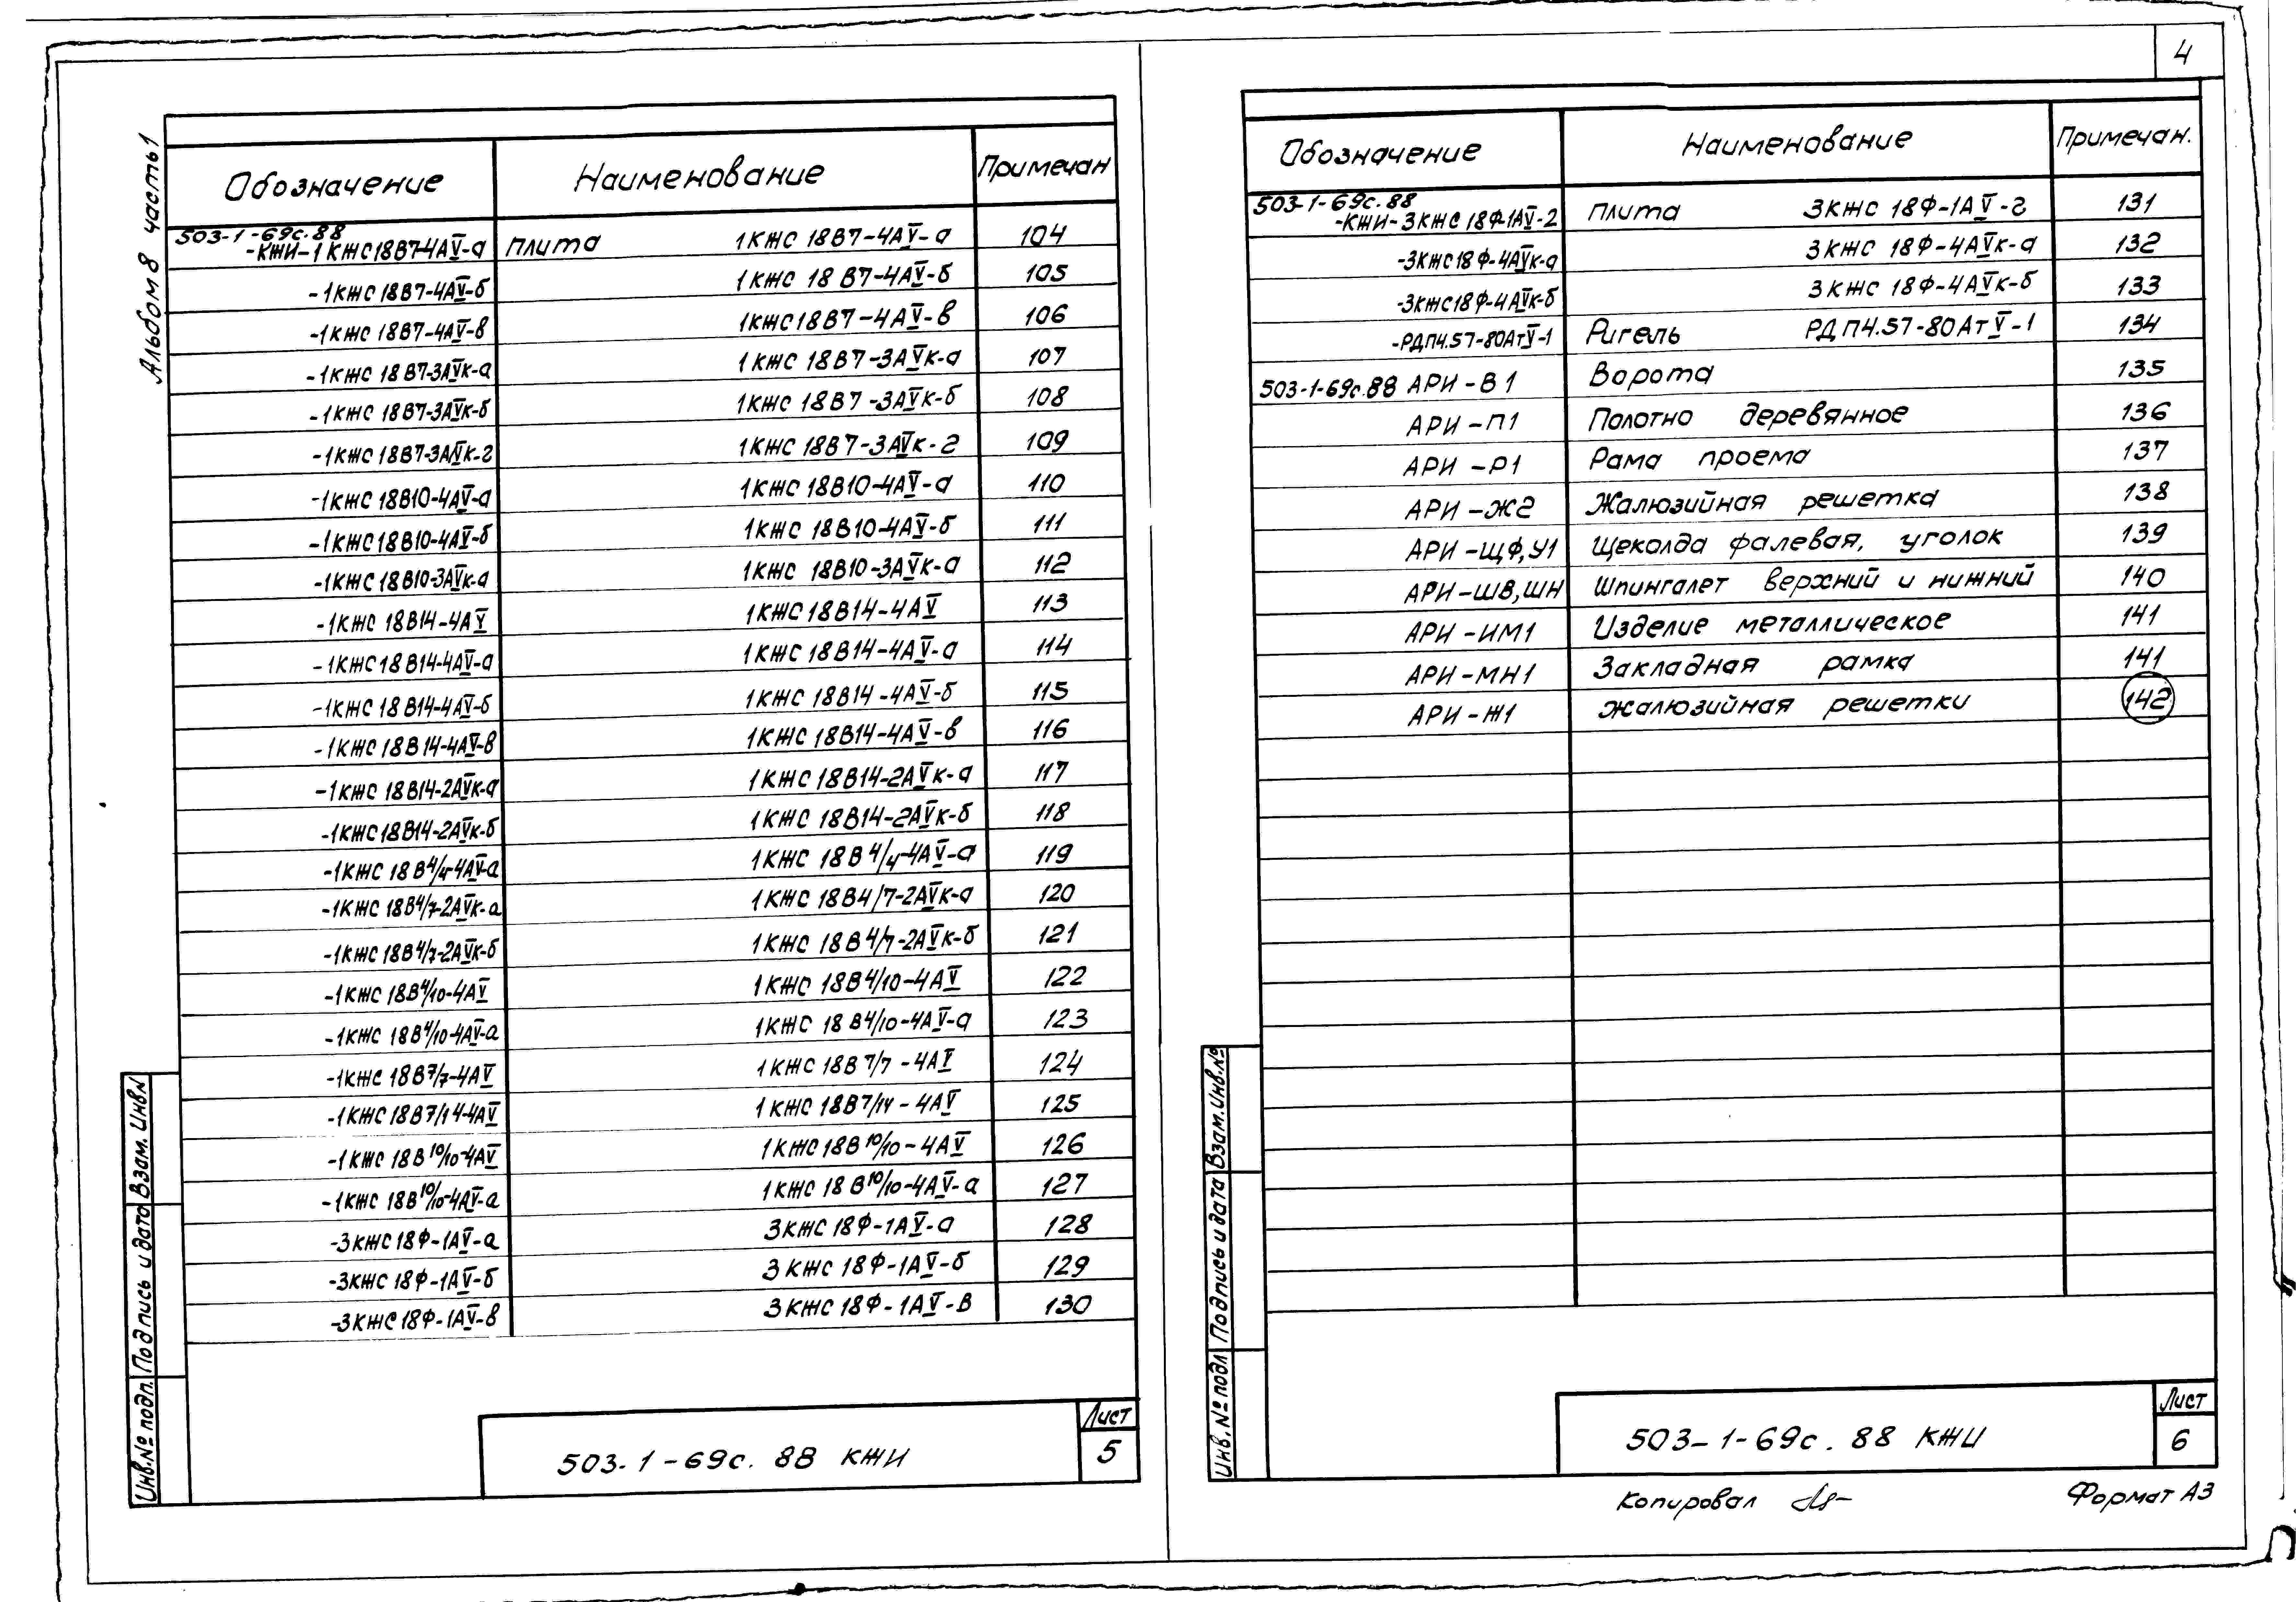 4
Альбом 8 часть 1
Обозначение Наименование Примечан
503-1-69с.88
-КЖИ-1КЖС18В7-4АV-а плита 1КЖС 18В7-4АV-а 104
-1КЖС18В7-4АV-б 1КЖС 18В7-4АV-б 105
-1КЖС18В7-4АV-в 1КЖС18В7-4АV-в 106
-1КЖС 18В7-3АVк-а 1КЖС 18В7-3АVк-а 107
-1КЖС 18В7-3АVк-б 1КЖС 18В7-3АVк-б 108
-1КЖС 18В7-3АVк-г 1КЖС 18В7-3АVк-г 109
-1КЖС 18В10-4АV-а 1КЖС 18В10-4АV-а 110
-1КЖС18В10-4АV-б 1КЖС 18В10-4АV-б 111
-1КЖС18В10-3АVк-а 1КЖС 18В10-3АVк-а 112
-1КЖС 18В14-4АV 1КЖС18В14-4АV 113
-1КЖС18В14-4АV-а 1КЖС 18В14-4АV-а 114
-1КЖС 18В14-4АV-б 1КЖС 18В14-4АV-б 115
-1КЖС 18В14-4АV-в 1КЖС 18В14-4АV-в 116
-1КЖС 18В14-2АVк-а 1КЖС 18В14-2АVк-а 117
-1КЖС18В14-2АVк-б 1КЖС 18В14-2АVк-б 118
-1КЖС 18В4/4-4АV-а 1КЖС 18В4/4-4АV-а 119
-1КЖС 18В4/7-2АVк-а 1КЖС 18В4/7-2АVк-а 120
-1КЖС 18В4/7-2АVк-б 1КЖС 18В4/7-2АVк-б 121
-1КЖС 18В4/10-4АV 1КЖС 18В4/10-4АV 122
-1КЖС 18В4/10-4АV-а 1КЖС 18В4/10-4АV-а 123
-1КЖС 18В7/7-4АV 1КЖС 18В7/7-4АV 124
-1КЖС 18В7/14-4АV 1КЖС 18В7/14-4АV 125
-1КЖС 18В10/10-4АV 1КЖС18В10/10-4АV 126
-1КЖС 18В10/10-4АV-а 1КЖС 18В10/10-4АV-а 127
-3КЖС18Ф-1АV-а 3КЖС 18Ф-1АV-а 128
-3КЖС 18Ф-1АV-б 3КЖС 18Ф-1АV-б 129
-3КЖС18Ф-1АV-в 3КЖС18Ф-1АV-в 130
Инв.№ подл. Подпись и дата Взам. Инв.№
503-1-69с. 88 КЖИ
Лист
5
Обозначение Наименование Примечан.
503-1-69с.88
-КЖИ-3КЖС 18Ф-1АV-г плита 3КЖС 18Ф-1АV-г 131
-3КЖС18Ф-4АVк-а 3КЖС 18Ф-4АVк-а 132
-3КЖС18Ф-4АVк-б 3КЖС 18Ф-4АVк-б 133
-РДП4.57-80АтV-1 Ригель РДП4.57-80АтV-1 134
503-1-69с.88 АРИ-В1 Ворота 135
АРИ-П1 Полотно деревянное 136
АРИ-Р1 Рама проема 137
АРИ-Ж2 Жалюзийная решетка 138
АРИ-ЩФ,У1 Щеколда фалевая, уголок 139
АРИ-ШВ,ШН Шпингалет верхний и нижний 140
АРИ-ИМ1 Изделие металлическое 141
АРИ-МН1 Закладная рамка 141
АРИ-Ж1 жалюзийная решетки 142
Инв.№ подл Подпись и дата Взам.Инв.№
503-1-69с. 88 КЖИ
Лист
6
Копировал
Формат А3